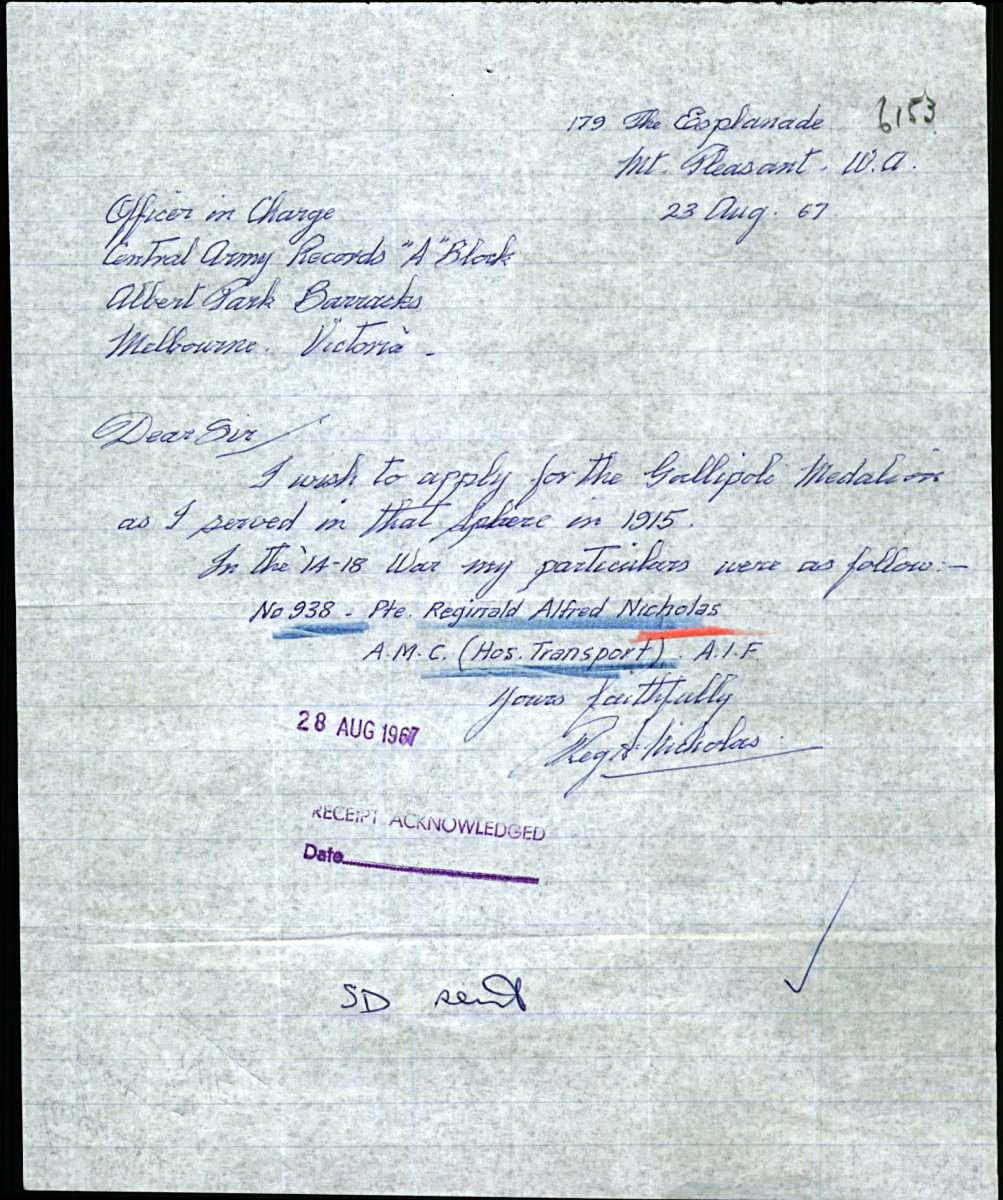 179 The Esplanade
6153
Mt. Pleasant. W.A.
23 Aug. 67
Officer in Charge
Central Army Records "A" Block
Albert Park Barracks
Melbourne. Victoria.
Dear Sir/
I wish to apply for the Gallipoli Medalion
as I served in that sphere in 1915.
In the '14-18 War my particulars were as follow:-
No 938 - Pte. Reginald Alfred Nicholas
A.M.C. (Hos. Transport). A.I.F
Yours faithfully
Reg A. Nicholas.
28 AUG 1967
RECEIPT ACKNOWLEDGED
Date
SD sent